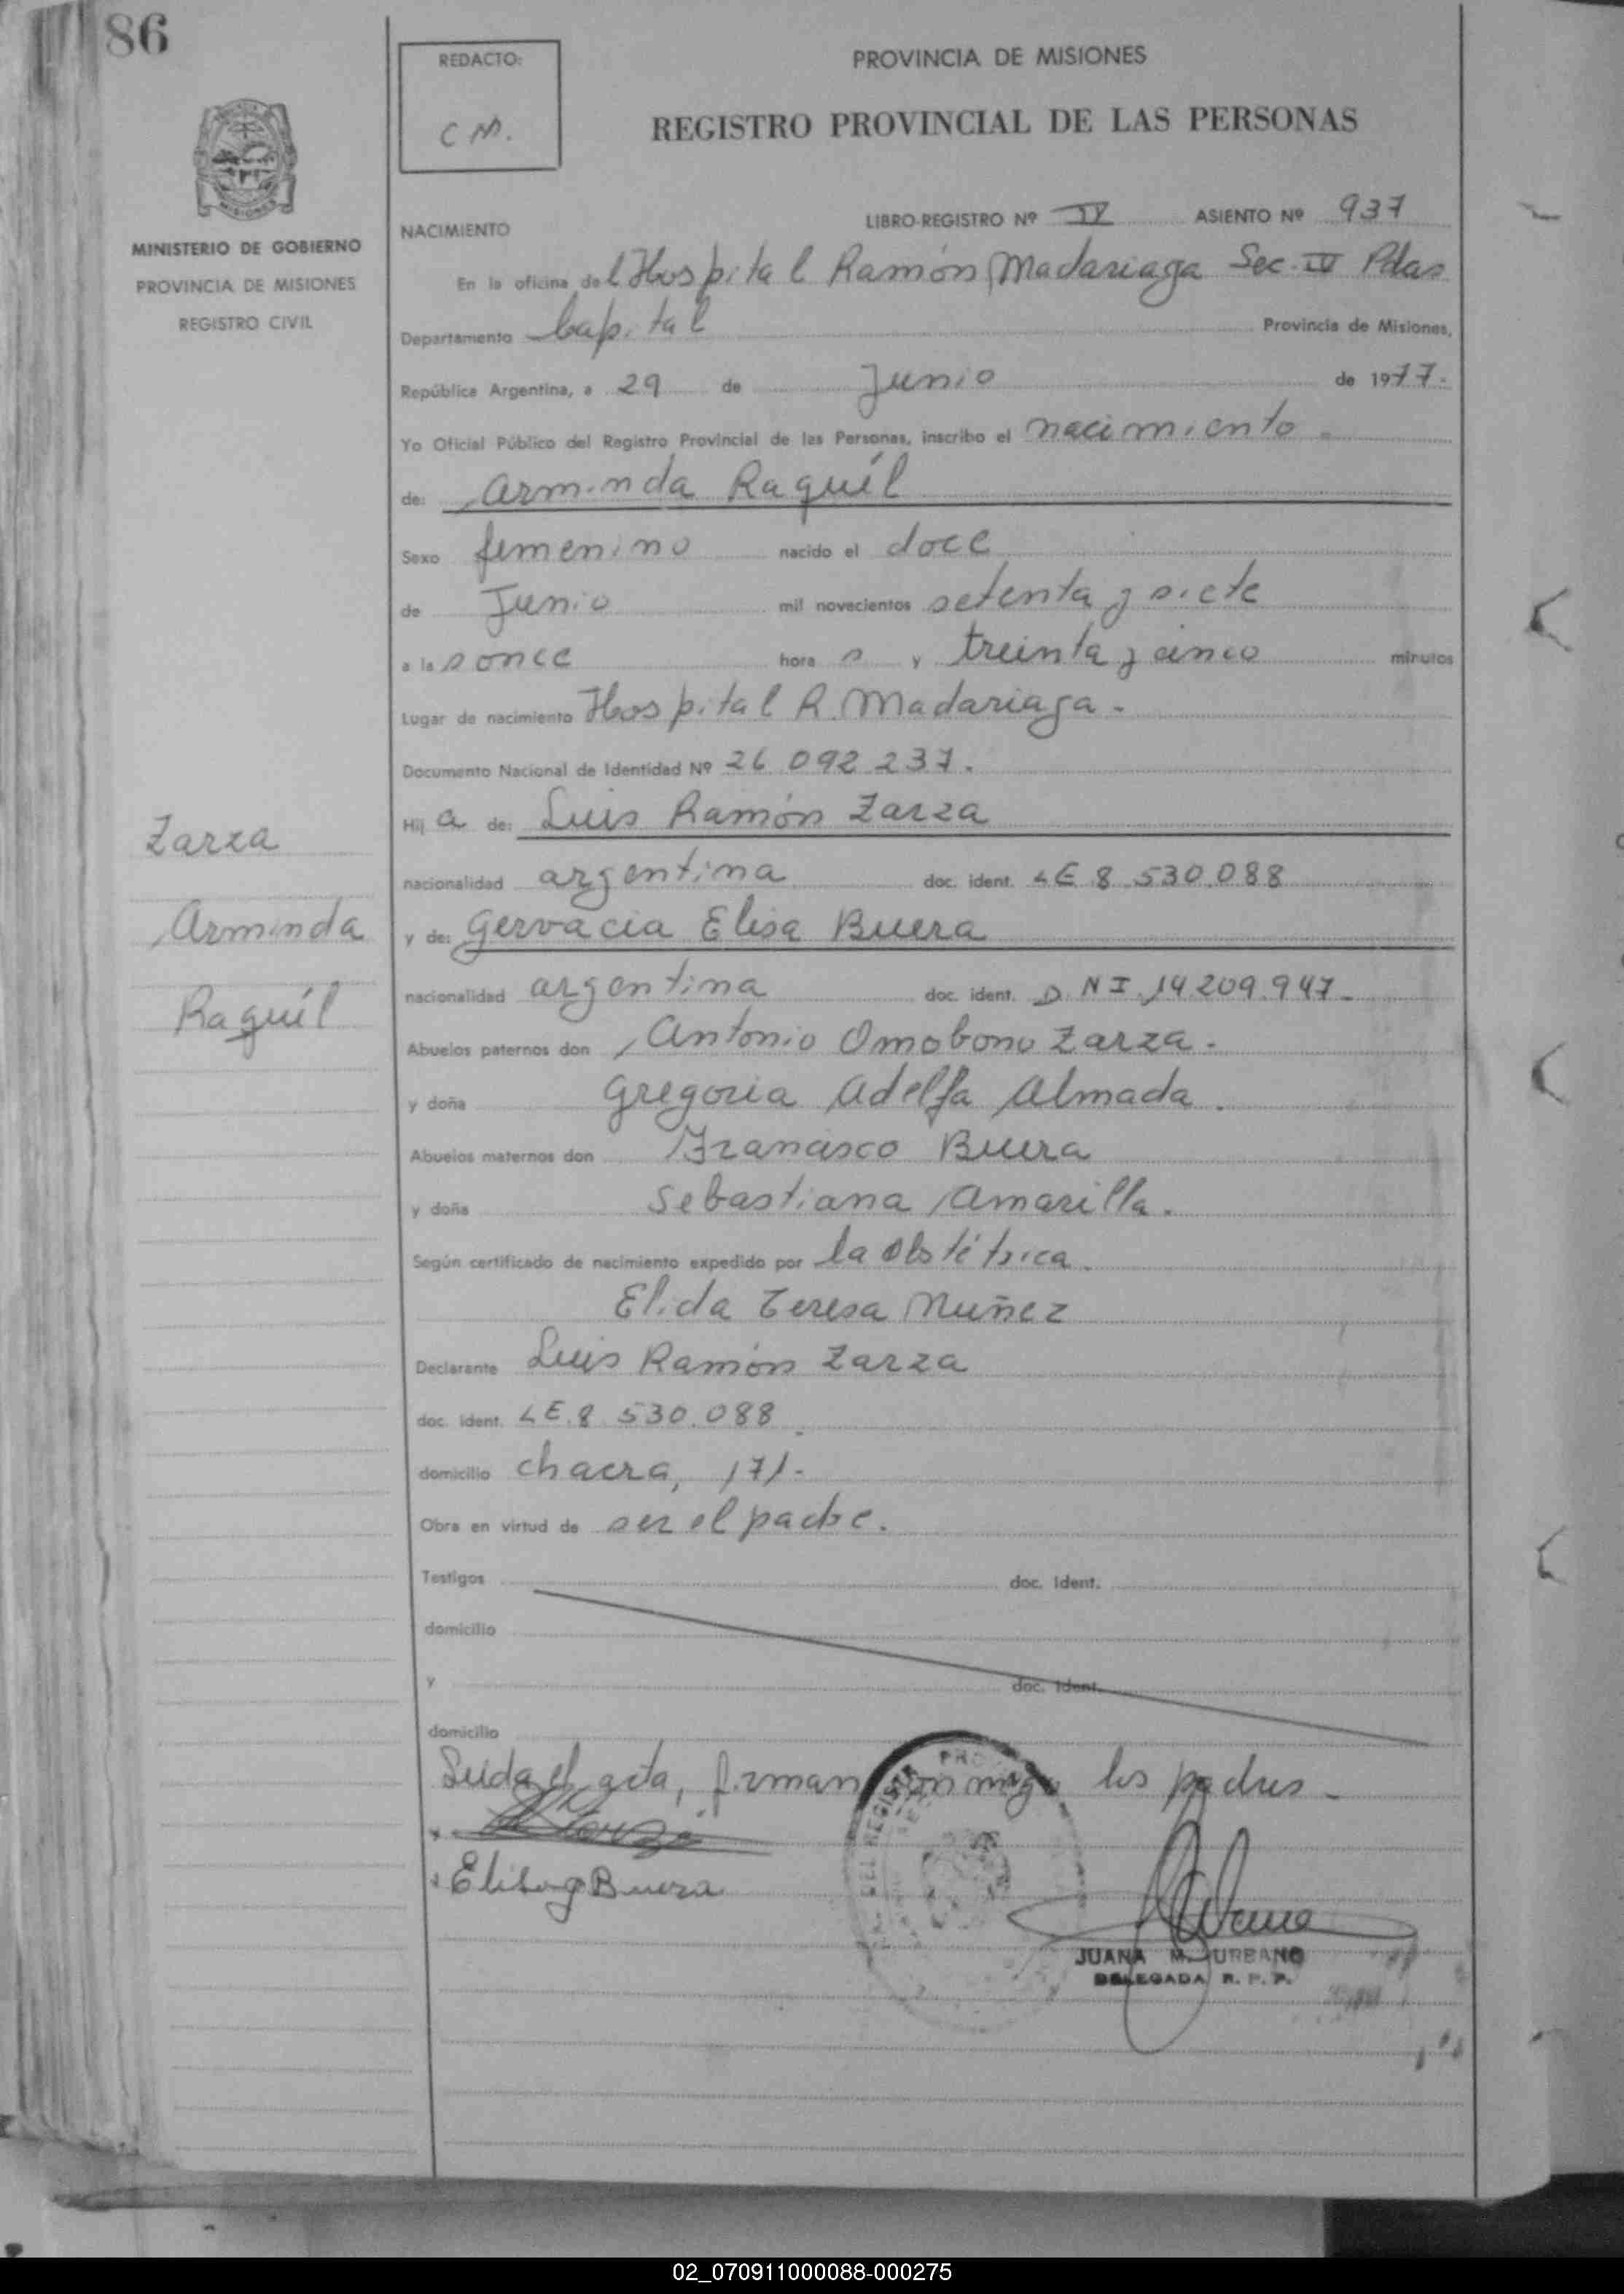 86
REDACTO:
C M.
PROVINCIA DE MISIONES
REGISTRO PROVINCIAL DE LAS PERSONAS
MISIONES
MINISTERIO DE GOBIERNO
PROVINCIA DE MISIONES
REGISTRO CIVIL
NACIMIENTO
LIBRO-REGISTRO Nº IV ASIENTO Nº 937
En la oficina del Hospital Ramón Madariaga Sec. IV Pdas
Departamento Capital Provincia de Misiones,
República Argentina, a 29 de Junio de 1977.
Yo Oficial Público del Registro Provincial de las Personas, inscribo el nacimiento
de: Arminda Raquél
Sexo femenino nacido el doce
de Junio mil novecientos setenta y siete
a las once horas y treinta y cinco minutos
Lugar de nacimiento Hospital R. Madariaga.
Documento Nacional de Identidad Nº 26 092 237.
Hija de: Luis Ramón Zarza
nacionalidad argentina doc. ident. LE 8.530.088
y de: Gervacia Elisa Buera
nacionalidad argentina doc. ident. D N I 14.209.947
Abuelos paternos don Antonio Omobono Zarza.
y doña Gregoria Adelfa Almada.
Abuelos maternos don Francisco Buera
y doña Sebastiana Amarilla.
Según certificado de nacimiento expedido por la Obstétrica
Elida Teresa Nuñez
Declarante Luis Ramón Zarza
doc. ident. LE.8 530.088
domicilio chacra, 171.
Obra en virtud de ser el padre.
Testigos doc. ident.
domicilio
y doc. ident.
domicilio
Leida el acta, firman conmigo los padres.
Elisa G Buera
JUANA M. URBANO
DELEGADA R. P. P.
Zarza
Arminda
Raquél
02_070911000088-000275